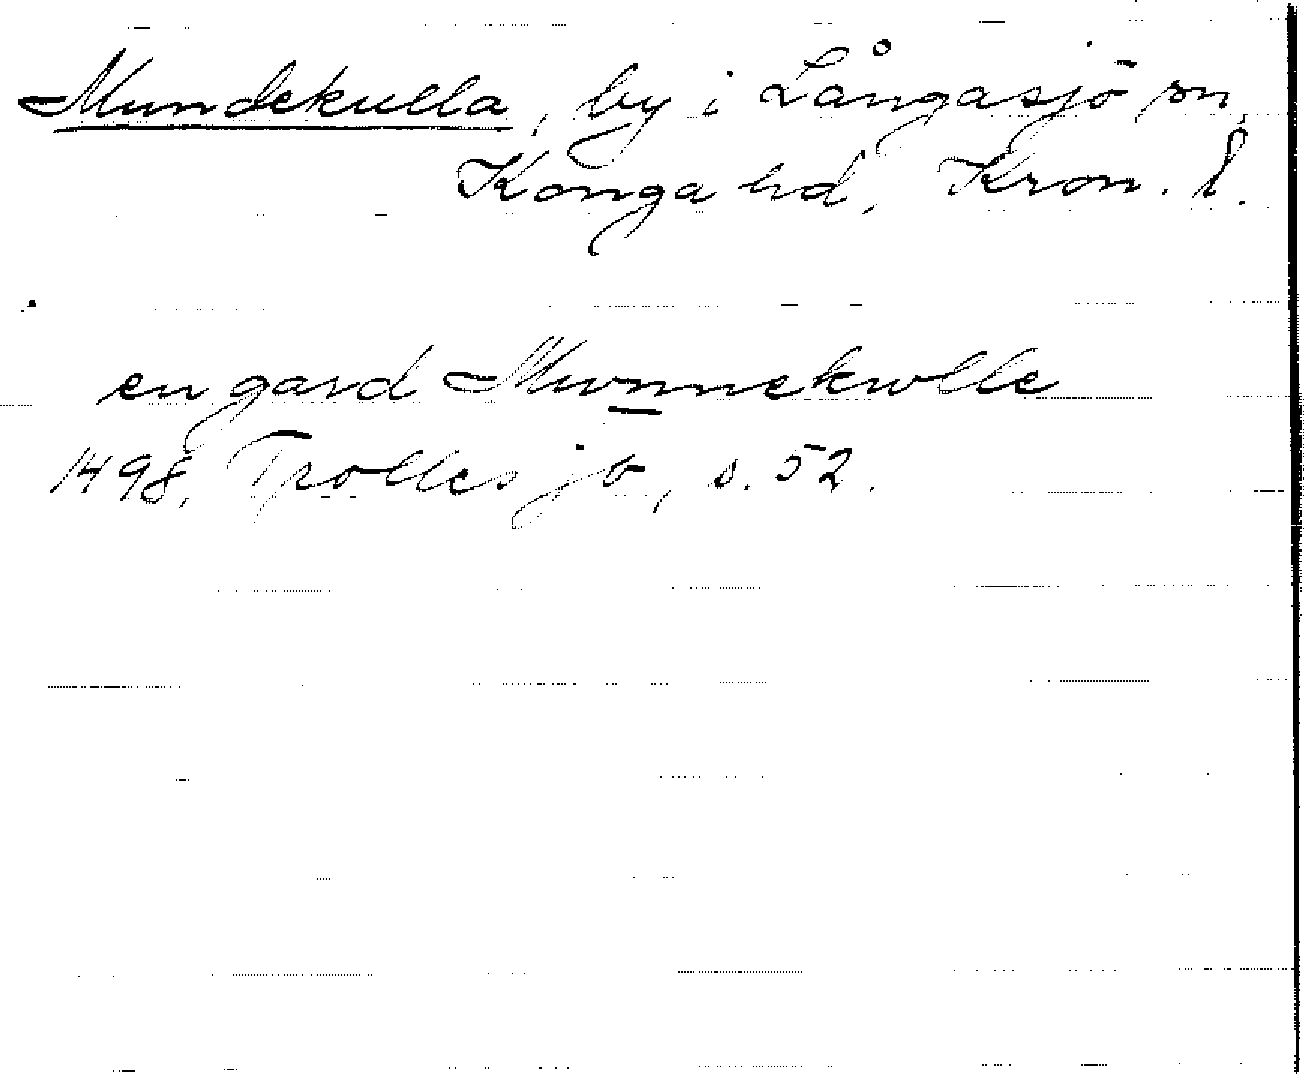 Mundekulla, by i Långasjö sn,
Konga hd, Kron. l.
en gard Munnekwlle
1498, Trolles jb, s. 52.